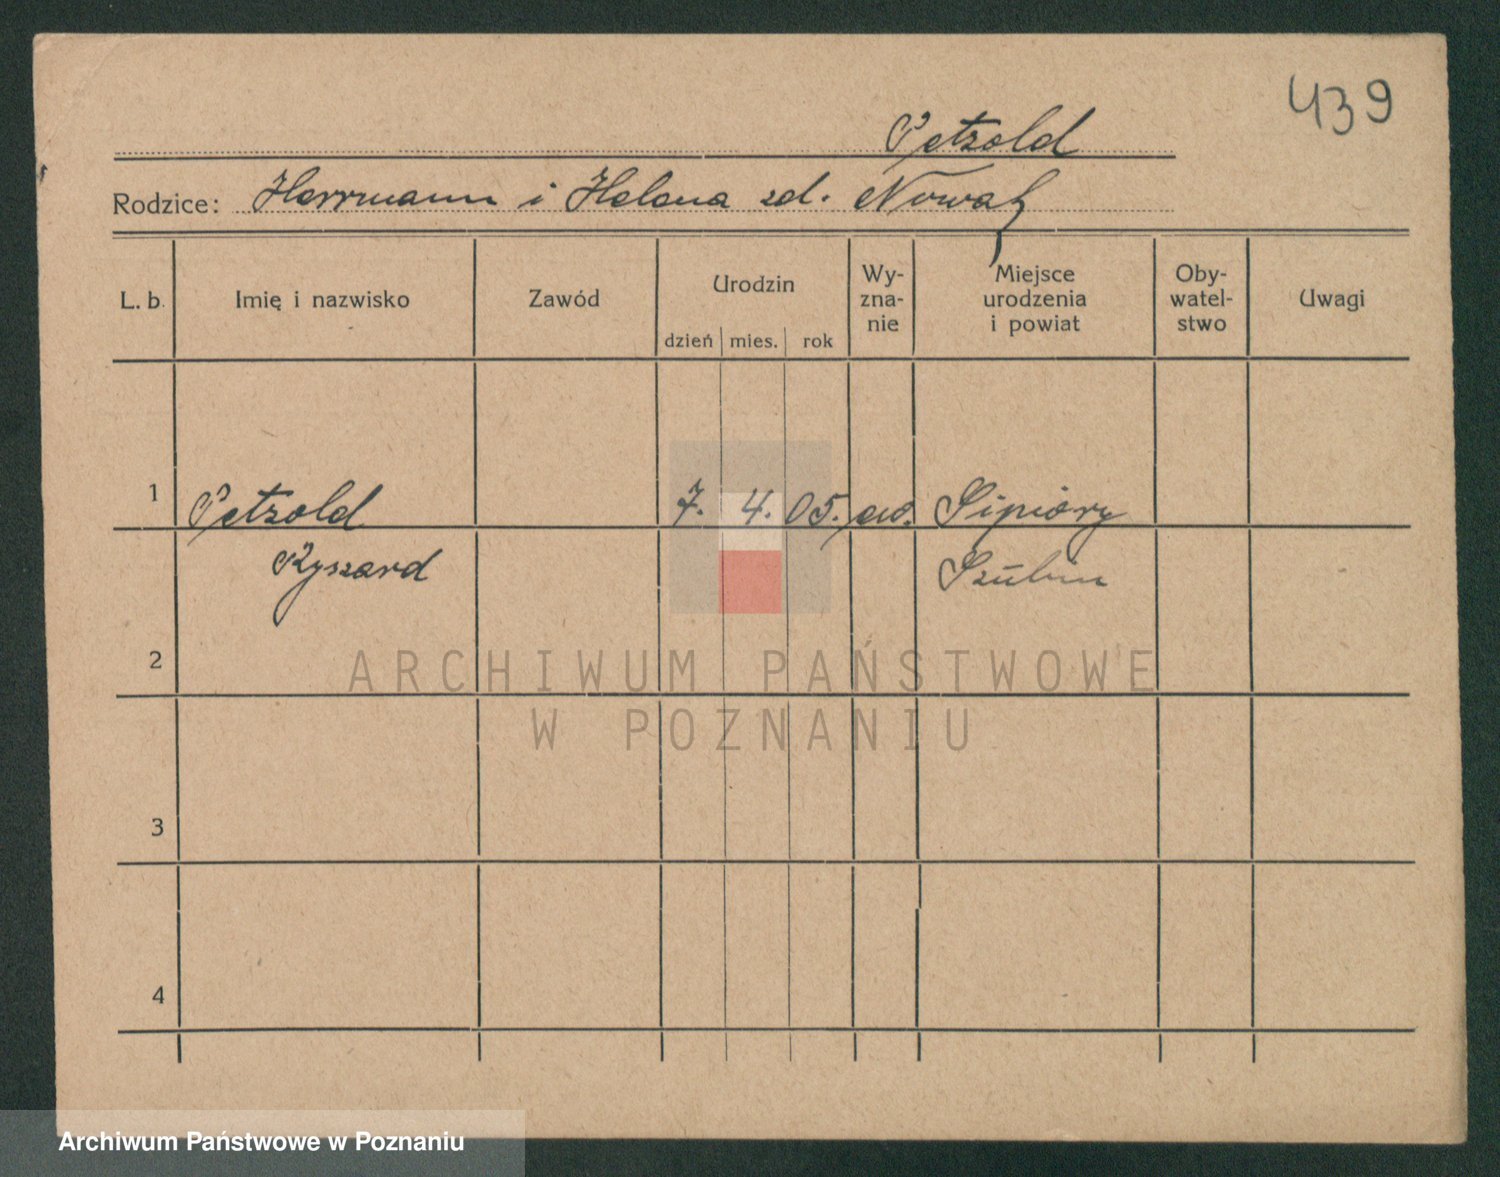 439
Petzold
Rodzice: Herrmann i Helena zd. Nowak
L. b.
Imię i nazwisko
Zawód
Urodzin
dzień mies. rok
Wy-
zna-
nie
Miejsce
urodzenia
i powiat
Oby-
watel-
stwo
Uwagi
1 Petzold 7. 4. 05. ew. Sipiory
Ryszard Szubin
2
ARCHIWUM PAŃSTWOWE
W POZNANIU
3
4
Archiwum Państwowe w Poznaniu